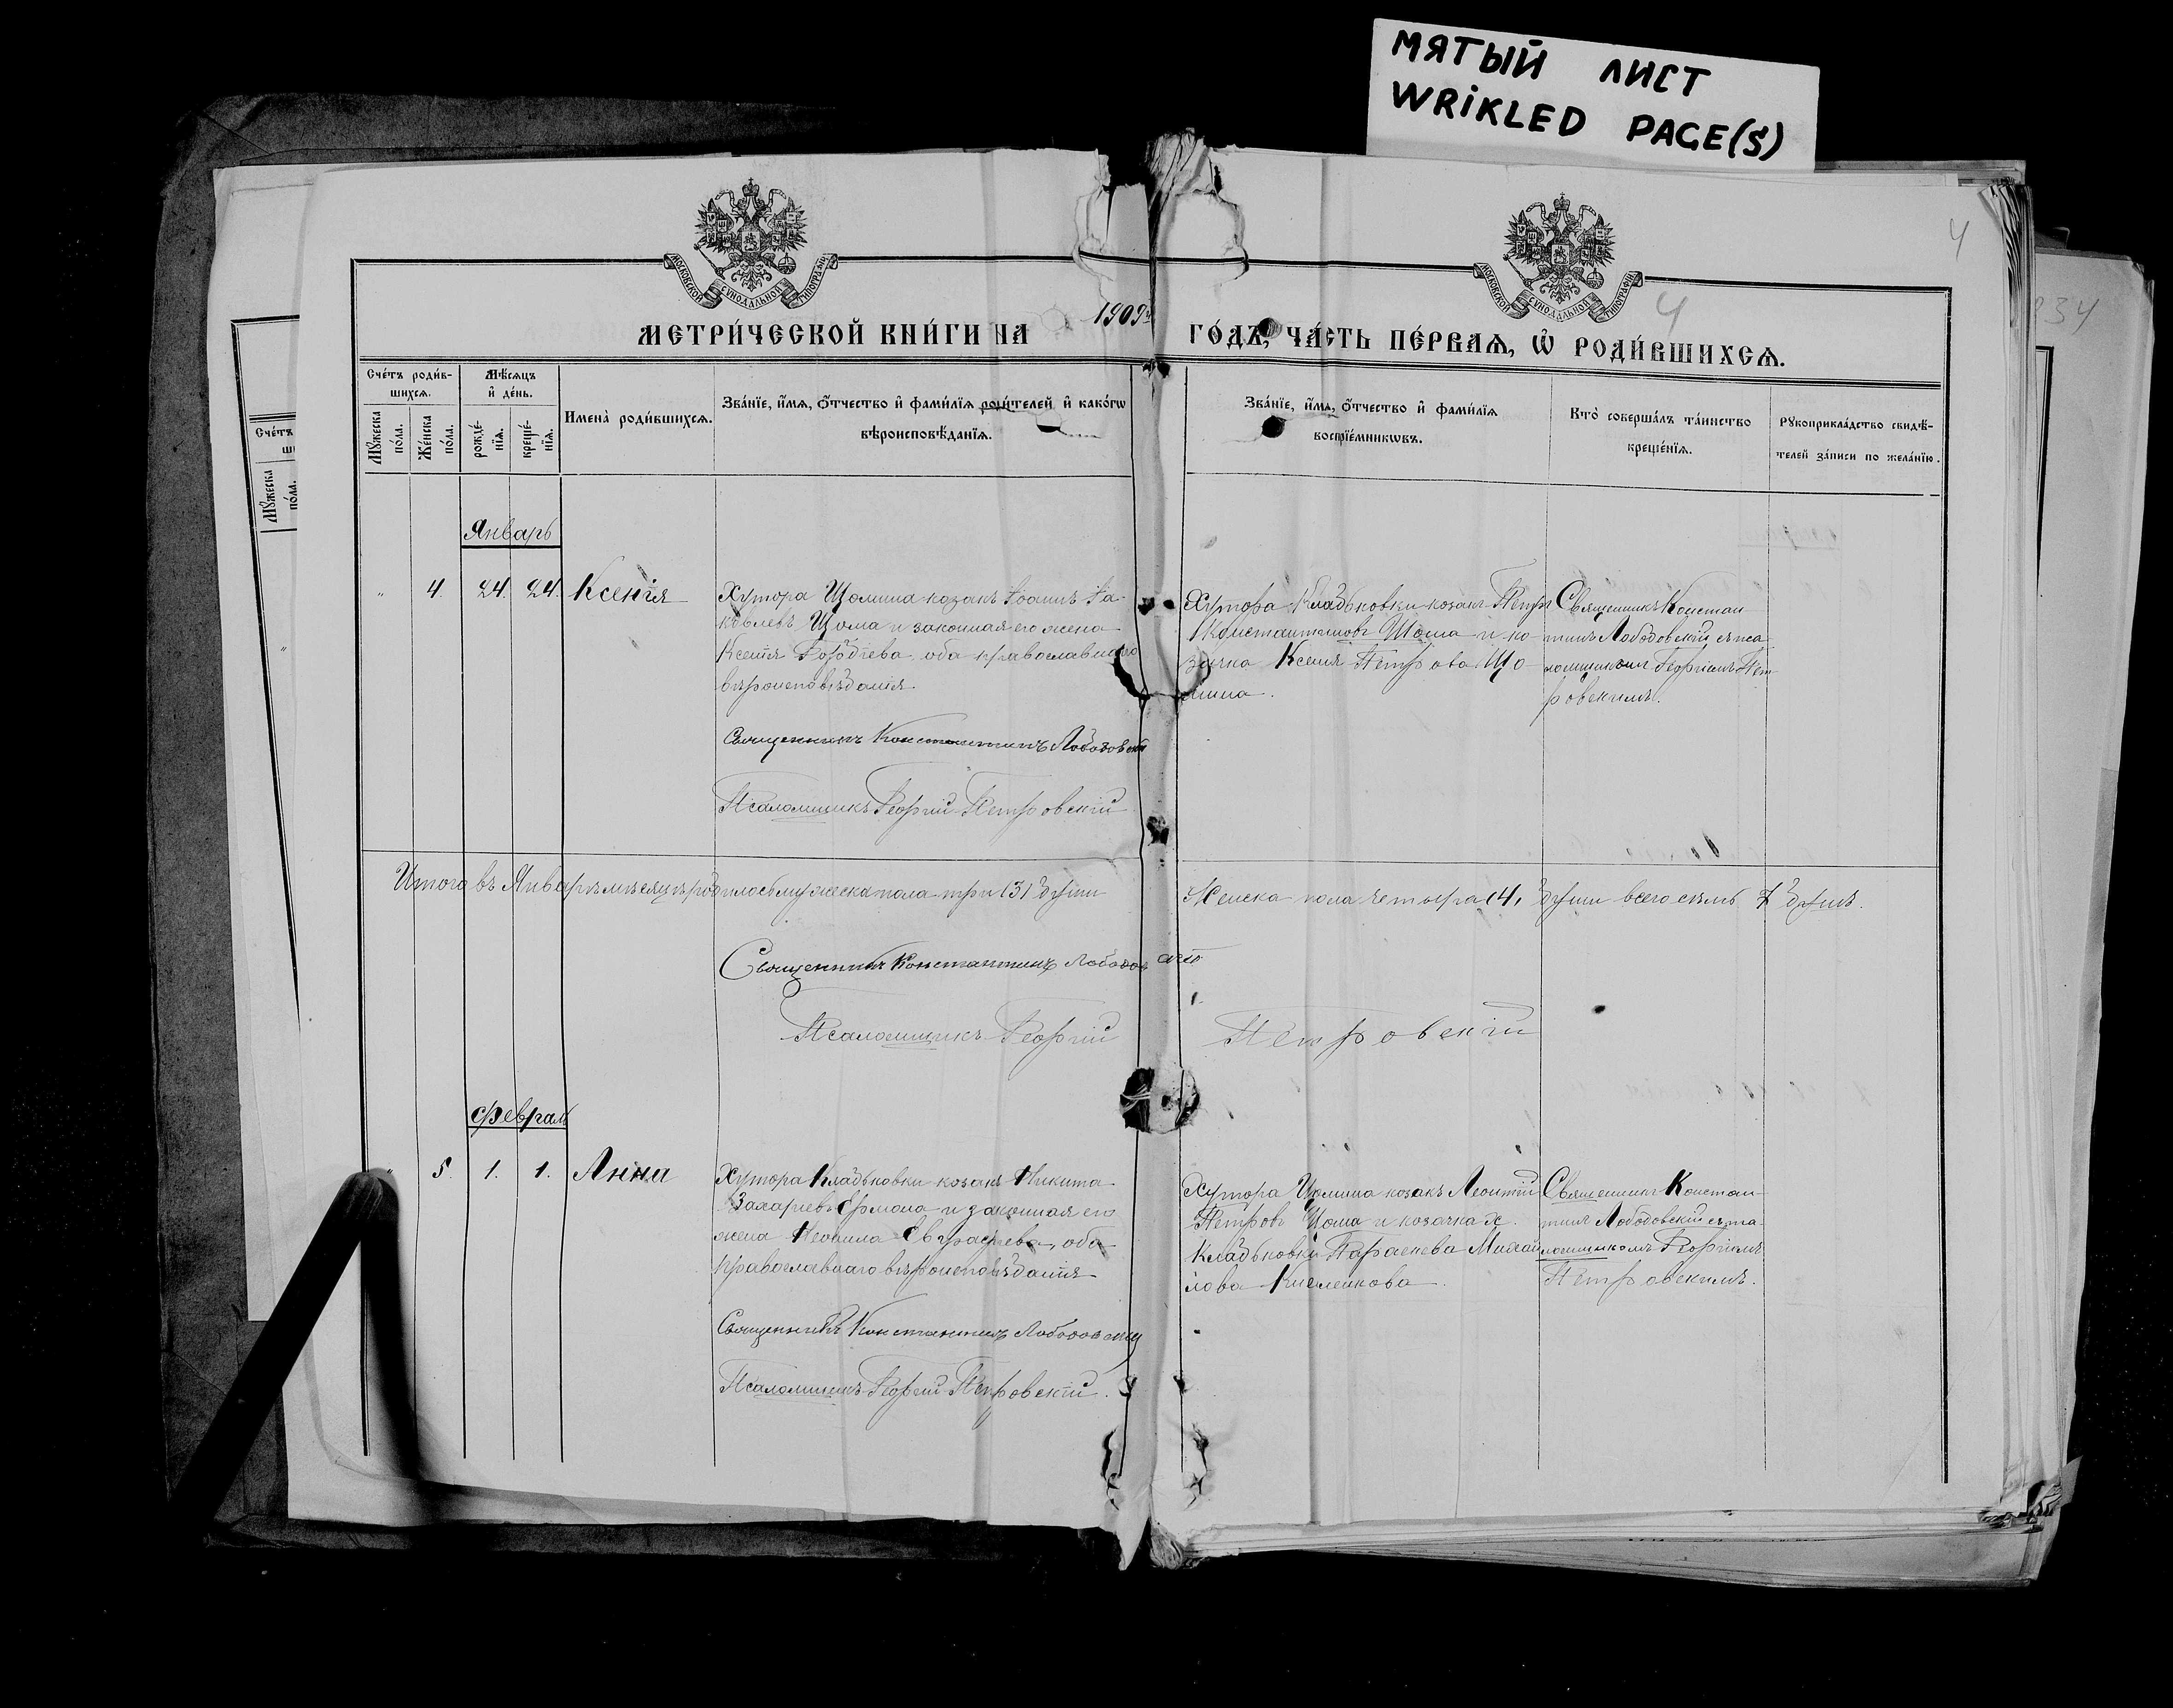 МЯТЫЙ ЛИСТ
WRIKLED PAGE(S)
МОСКОВСКОЙ СУНОДАЛЬНОЙ ТИПОГРАФІИ
МОСКОВСКОЙ СУНОДАЛЬНОЙ ТИПОГРАФІИ
4
4
234
МЕТРИ́ЧЕСКОЙ КНИ́ГИ НА 1909й ГО́ДЪ, ЧА́СТЬ ПЕ́РВАѦ, Ѡ҆ РОДИ́ВШИХСѦ.
Сче́тъ роди́в-
шихсѧ.
Мꙋ́жеска по́ла.
Же́нска по́ла.
Мѣ́сѧцъ
и҆ де́нь.
рожде́-
нїѧ.
креще́-
нїѧ.
Имена̀ роди́вшихсѧ.
Зва́нїе, и҆́мѧ, ѻ҆́тчество и҆ фами́лїѧ роди́телей и҆ како́гѡ
вѣроисповѣ́данїѧ.
Зва́нїе, и҆́мѧ, ѻ҆́тчество и҆ фами́лїѧ
воспрїе́мникѡвъ.
Кто̀ соверша́лъ та́инство
креще́нїѧ.
Рꙋкоприкла́дство свидѣ́-
телей за́писи по жела́нїю.
Сче́тъ
Мꙋ́жеска
по́ла.
Январь
" 4. 24. 24. Ксенія
Хутора Щомина козакъ Іоаннъ Іа-
ковлевъ Щома и законная его жена
Ксенія, оба православнаго
вѣроисповѣданія
Священникъ Константинъ Лободовскій
Псаломщикъ Георгій Петровскій
Хутора Кладьковки козакъ Петръ
Константиновъ Щома и ко-
зачка Ксенія Петрова Що-
мина.
Священникъ Констан
тинъ Лободовскій съ пса
ломщикомъ Георгіемъ Пет
ровскимъ.
Итого въ Январѣ мѣсяцѣ родилось мужеска пола три (3) души
Женска пола четыре (4) души всего семь 7 душъ.
Священникъ Константинъ Лободовскій
Псаломщикъ Георгій Петровскій
Февраль
" 5. 1. 1. Анна
Хутора Кладьковки козакъ Никита
Захаріевъ Ермола и законная его
жена Неонила Евграфіева, оба
православнаго вѣроисповѣданія
Священникъ Константинъ Лободовскій
Псаломщикъ Георгій Петровскій.
Хутора Щомина козакъ Леонтій
Петровъ Щома и козачка х.
Кладьковки Параскева Михаи
лова
Священникъ Констан-
тинъ Лободовскій съ пса-
ломщикомъ Георгіемъ
Петровскимъ.